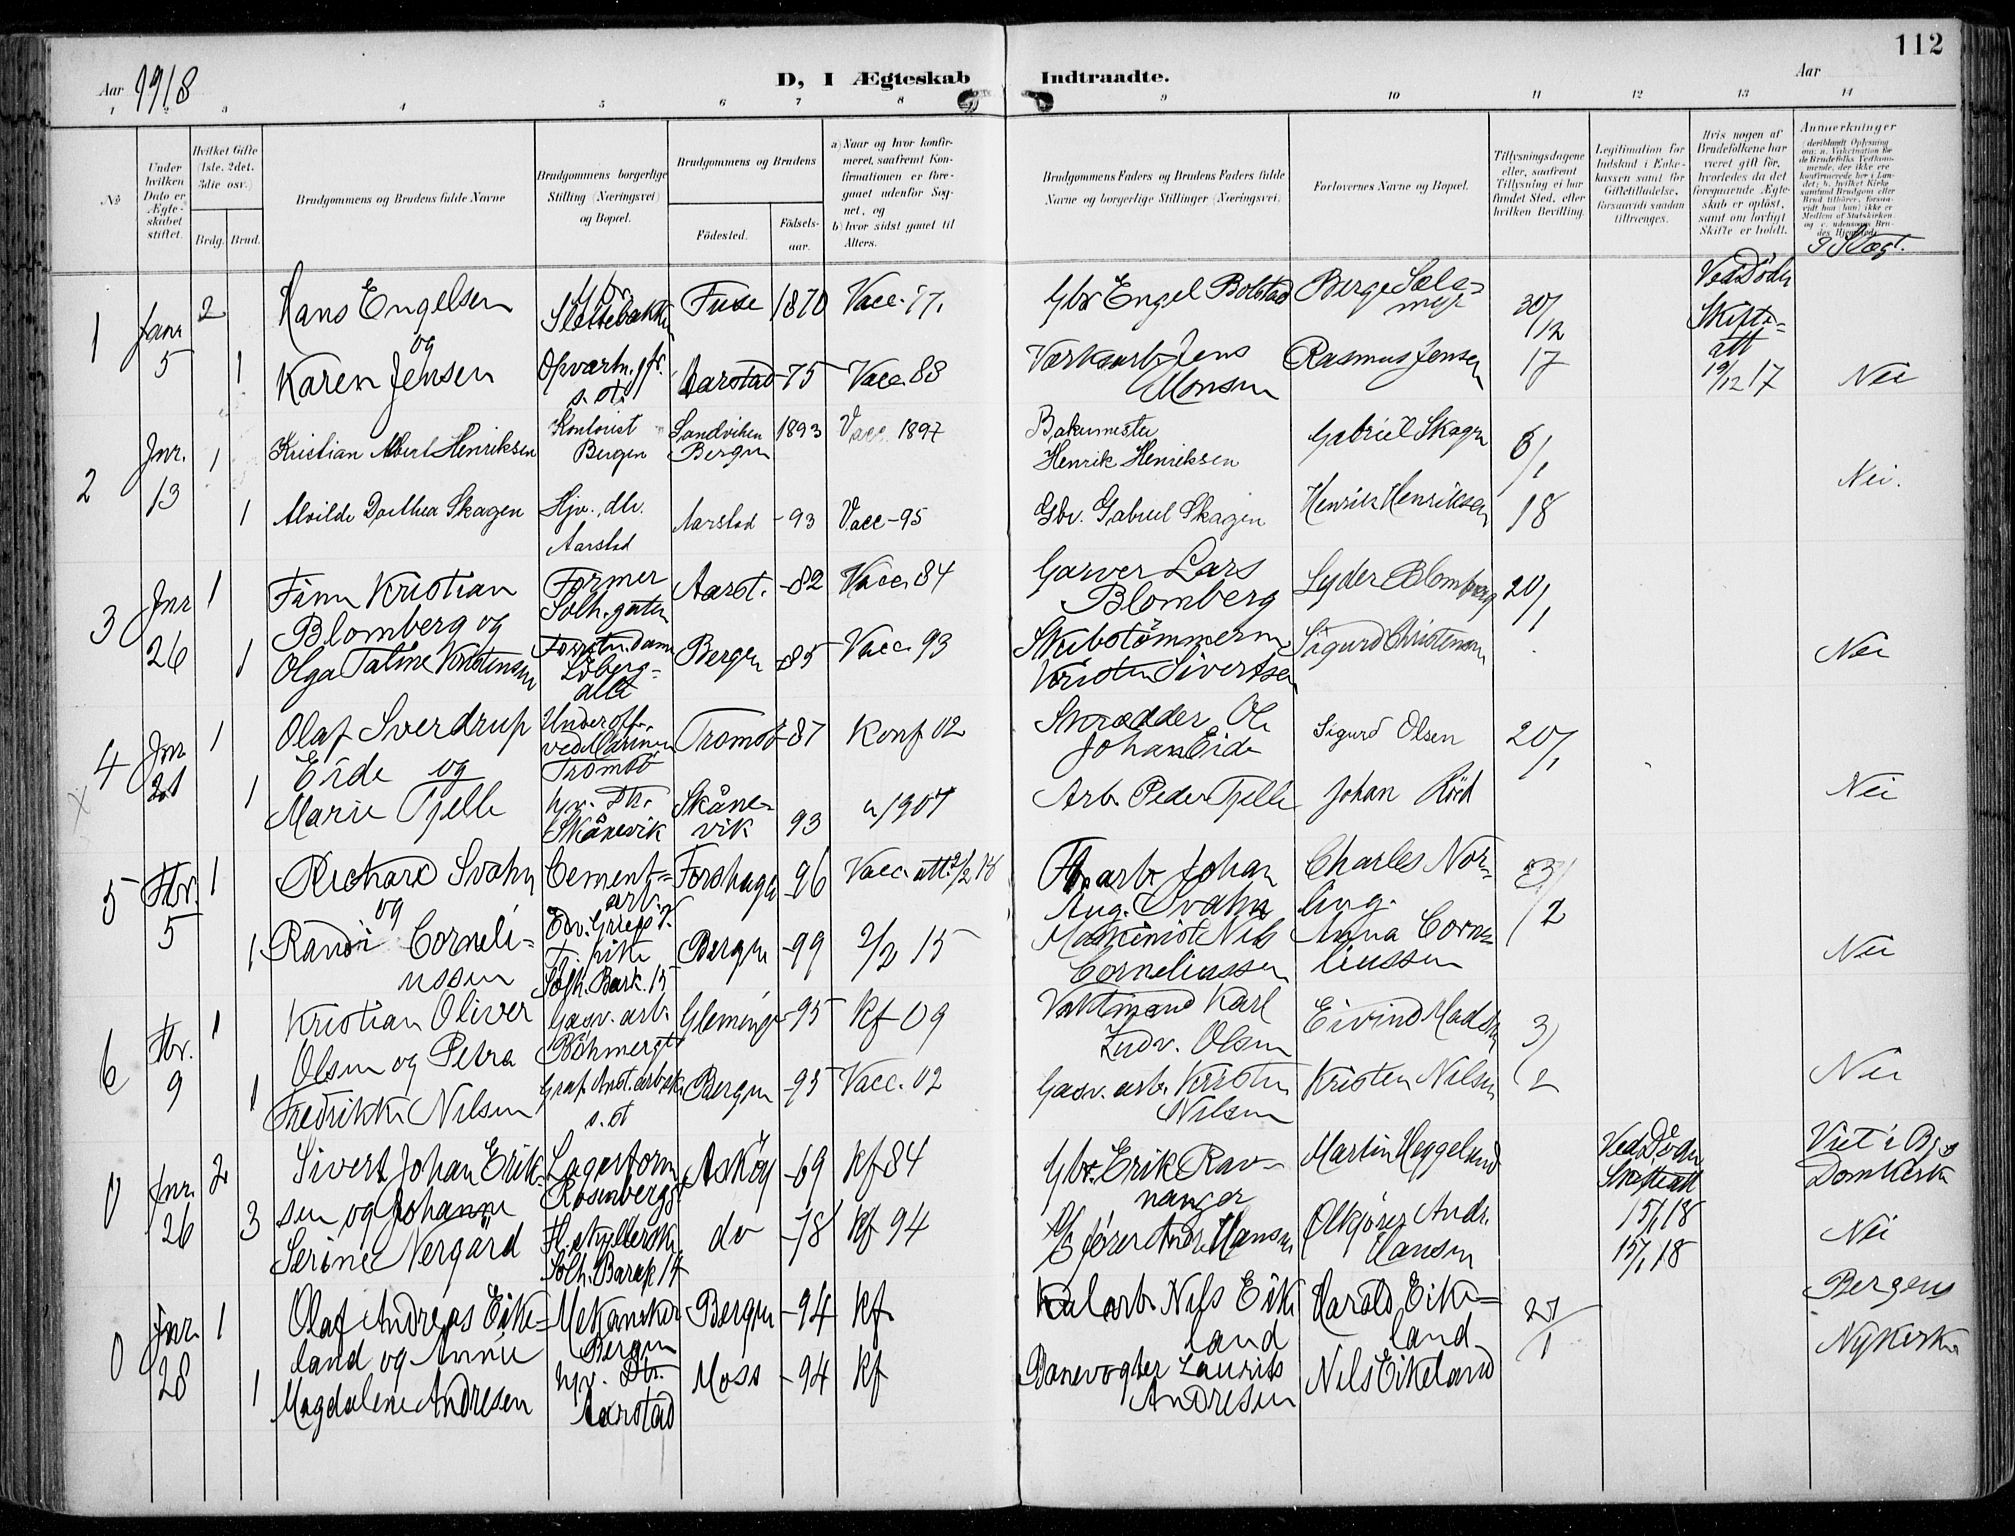 112
Aar 1918
D, I Ægteskab Indtraadte.
Aar
1 2 3 4 5 6 7 8 9 10 11 12 13 14
No
Under hvilken Dato er Ægteskabet stiftet.
Hvilket Gifte (1ste, 2det, 3die osv.)
Brdg. Brud.
Brudgommens og Brudens fulde Navne
Brudgommens borgerlige Stilling (Næringsvei) og Bopæl.
Brudgommens og Brudens
Fødested.
Fødselsaar.
a) Naar og hvor konfirmeret, saafremt Konfirmationen er foregaaet udenfor Sognet, og
b) hvor sidst gaaet til Alters.
Brudgommens Faders og Brudens Faders fulde Navne og borgerlige Stillinger (Næringsvei)
Forlovernes Navne og Bopæl.
Tillysningsdagene eller, saafremt Tillysning ei har fundet Sted, efter hvilken Bevilling.
Legitimation for Indskud i Enkekassen samt for Giftetilladelse, forsaavidt saadan tiltrænges.
Hvis nogen af Brudefolkene har været gift før, hvorledes da det foregaaende Ægteskab er opløst, samt om lovligt Skifte er holdt.
Anmerkninger
1 Janr 5 2 Hans Engelsen og Gbr. Slettebakken Fuse 1870 Vacc. 77. Gbr Engel Bolstad Berge Sælemyr 30/12 17 Ved Død Skifteatt 19/12 17
1 Karen Jensen s. st. Aarstad -75 Vacc. 88 Værksarb. Jens Monsen Rasmus Jensen Nei
2 Jnr. 13 1 Kristian Albert Henriksen Kontorist Bergen Sandviken Bergen 1893 Vacc. 1897 Bakermester Henrik Henriksen Gabriel Skagen 6/1 18 Nei.
1 Alvilde Dorthea Skagen Hjv., dtr. Aarstad Aarstad -93 Vacc -95 Gbr. Gabriel Skagen Henrik Henriksen
3 Jnr 26 1 Finn Kristian Blomberg og Former Solh. gaten Aarst. -82 Vacc. 84 Garver Lars Blomberg Lyder Blomberg 20/1
1 Olga Taline Kristensen Bergen -85 Vacc. 93 Skibstömmerm Kristen Sivertsen Sigurd Christensen Nei
4 Jnr 1 Olaf Sverdrup Eide og Underoff. ved Marinen Tromsö Tromsö -87 Konf 02 Skrædder Ole Johan Eide Sigurd Olsen 20/1
1 Marie Tjelle hjv. dtr. Skånevik Skånevik 93 " 1907 Arb. Peder Tjelle Johan Nei
5 Fbr. 5 1 Richard Svahn og Cementarb. Forshaga -96 Vacc. att. 2/2 18 arb. Johan Aug. Svahn Charles Norling. 3/2
1 Randi Corneliussen Solh. Bark. 15 Bergen -99 2/2 15 Maskinist Nils Corneliussen Anna Corneliussen Nei
6 Fbr. 9 1 Kristian Oliver Olsen og Petra Gasv. arb. Böhmergt Gleminge -95 Kf 09 Vaktmand Karl Ludv. Olsen Eivind Madsen 3/2
1 Fredrikke Nilsen s. st Bergen -95 Vacc. 02 Gasv. arb. Kristen Nilsen Kristen Nilsen Nei
0 Jnr. 26 2 Sivert Johan Eriksen og Johanne Lagerform Rosenbergsgt Asköy -69 Kf 84 Gbr. Erik Ravnanger Martin Heggelund Ved Död Skifteatt 15/1 18 Viet i Bgs Domkirke
3 Serine Nergård Solh. Barak 14 do -78 Kf 94 Andr. Hansen Andr. Hansen 15/1 18 Nei
0 Jnr. 28 1 Olaf Andreas Eikeland og Annie Mekaniker Bergen Bergen -94 Kf arb. Nils Eikeland Harald Eikeland 27/1 Bergens Nykirke
1 Magdalene Andresen hjv. Dtr. Aarstad Moss -94 Kf Banevogter Laurits Andresen Nils Eikeland